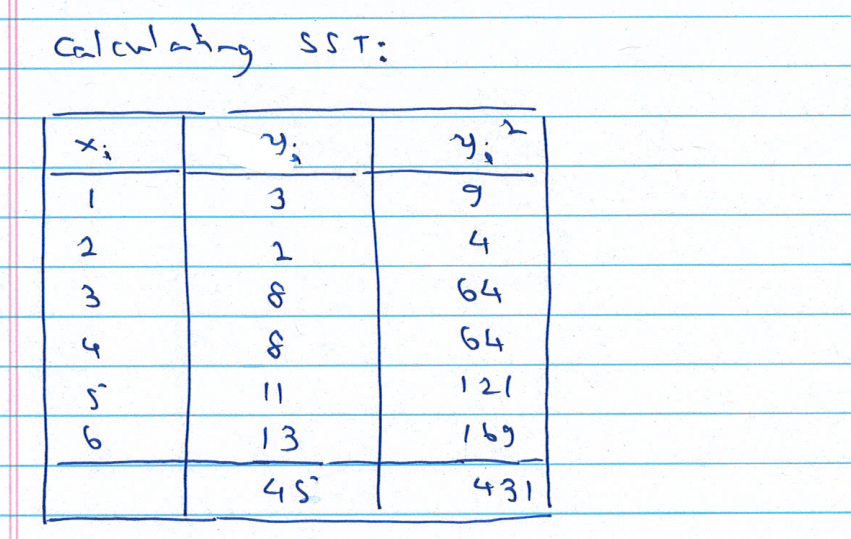 Calculating SST:
xᵢ yᵢ yᵢ²
1 3 9
2 2 4
3 8 64
4 8 64
5 11 121
6 13 169
45 431